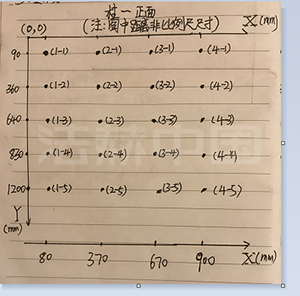 柱一正面
(0,0) (注:图中距离非比例尺尺寸) X(mm)
90 (1-1) (2-1) (3-1) (4-1)
360 (1-2) (2-2) (3-2) (4-2)
640 (1-3) (2-3) (3-3) (4-3)
830 (1-4) (2-4) (3-4) (4-4)
1200 (1-5) (2-5) (3-5) (4-5)
Y
(mm)
80 370 670 900 X(mm)